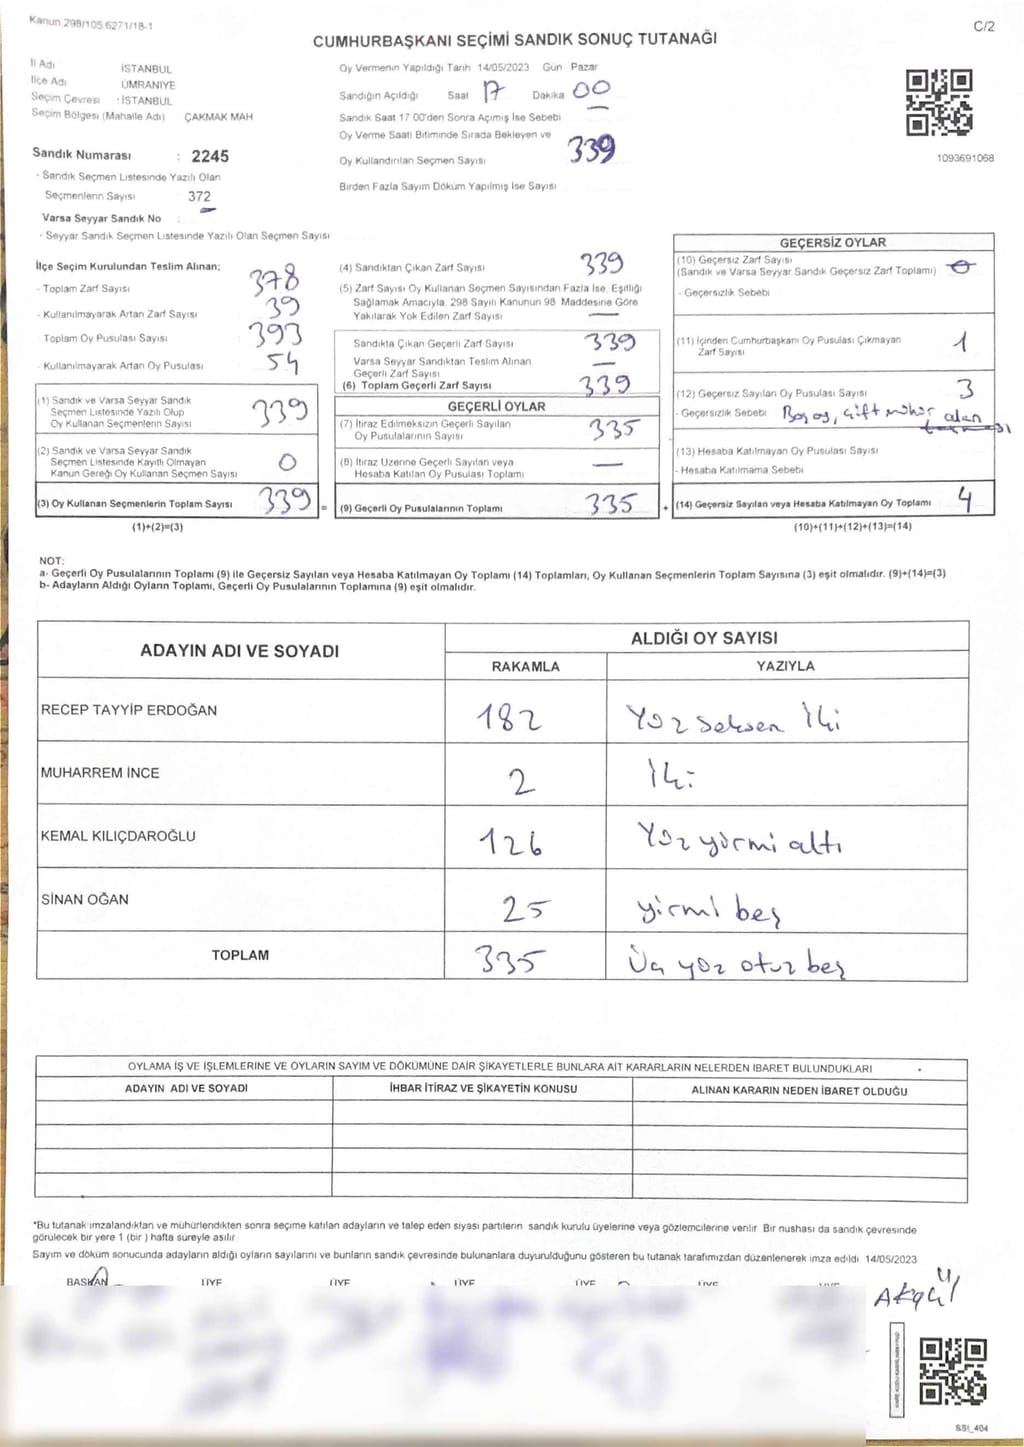 Kanun 298/105 6271/18-1
C/2
CUMHURBAŞKANI SEÇİMİ SANDIK SONUÇ TUTANAĞI
İl Adı İSTANBUL
İlçe Adı ÜMRANİYE
Seçim Çevresi : İSTANBUL
Seçim Bölgesi (Mahalle Adı) ÇAKMAK MAH
Sandık Numarası : 2245
- Sandık Seçmen Listesinde Yazılı Olan
Seçmenlerin Sayısı 372
Varsa Seyyar Sandık No :
- Seyyar Sandık Seçmen Listesinde Yazılı Olan Seçmen Sayısı
Oy Vermenin Yapıldığı Tarih 14/05/2023 Gün Pazar
Sandığın Açıldığı Saat 17 Dakika 00
Sandık Saat 17 00'den Sonra Açımış İse Sebebi
Oy Verme Saati Bitiminde Sırada Bekleyen ve
Oy Kullandırılan Seçmen Sayısı 339
Birden Fazla Sayım Döküm Yapılmış İse Sayısı
1093691068
İlçe Seçim Kurulundan Teslim Alınan;
- Toplam Zarf Sayısı 378
- Kullanılmayarak Artan Zarf Sayısı 39
Toplam Oy Pusulası Sayısı 393
- Kullanılmayarak Artan Oy Pusulası 54
(1) Sandık ve Varsa Seyyar Sandık
Seçmen Listesinde Yazılı Olup
Oy Kullanan Seçmenlerin Sayısı 339
(2) Sandık ve Varsa Seyyar Sandık
Seçmen Listesinde Kayıtlı Olmayan
Kanun Gereği Oy Kullanan Seçmen Sayısı 0
(3) Oy Kullanan Seçmenlerin Toplam Sayısı 339 =
(1)+(2)=(3)
(4) Sandıktan Çıkan Zarf Sayısı 339
(5) Zarf Sayısı Oy Kullanan Seçmen Sayısından Fazla İse, Eşitliği
Sağlamak Amacıyla, 298 Sayılı Kanunun 98 Maddesine Göre
Yakılarak Yok Edilen Zarf Sayısı —
Sandıkta Çıkan Geçerli Zarf Sayısı 339
Varsa Seyyar Sandıktan Teslim Alınan
Geçerli Zarf Sayısı —
(6) Toplam Geçerli Zarf Sayısı 339
GEÇERLİ OYLAR
(7) İtiraz Edilmeksizin Geçerli Sayılan
Oy Pusulalarının Sayısı 335
(8) İtiraz Üzerine Geçerli Sayılan veya
Hesaba Katılan Oy Pusulası Toplamı —
(9) Geçerli Oy Pusulalarının Toplamı 335 +
GEÇERSİZ OYLAR
(10) Geçersiz Zarf Sayısı
(Sandık ve Varsa Seyyar Sandık Geçersiz Zarf Toplamı) 0
- Geçersizlik Sebebi
(11) İçinden Cumhurbaşkanı Oy Pusulası Çıkmayan
Zarf Sayısı 1
(12) Geçersiz Sayılan Oy Pusulası Sayısı 3
- Geçersizlik Sebebi Boş oy, çift mühür alan
(13) Hesaba Katılmayan Oy Pusulası Sayısı
- Hesaba Katılmama Sebebi
(14) Geçersiz Sayılan veya Hesaba Katılmayan Oy Toplamı 4
(10)+(11)+(12)+(13)=(14)
NOT:
a- Geçerli Oy Pusulalarının Toplamı (9) ile Geçersiz Sayılan veya Hesaba Katılmayan Oy Toplamı (14) Toplamları, Oy Kullanan Seçmenlerin Toplam Sayısına (3) eşit olmalıdır. (9)+(14)=(3)
b- Adayların Aldığı Oyların Toplamı, Geçerli Oy Pusulalarının Toplamına (9) eşit olmalıdır.
ADAYIN ADI VE SOYADI ALDIĞI OY SAYISI
RAKAMLA YAZIYLA
RECEP TAYYİP ERDOĞAN 182 Yüz seksen iki
MUHARREM İNCE 2 İki
KEMAL KILIÇDAROĞLU 126 Yüz yirmi altı
SİNAN OĞAN 25 yirmi beş
TOPLAM 335 Üç yüz otuz beş
OYLAMA İŞ VE İŞLEMLERİNE VE OYLARIN SAYIM VE DÖKÜMÜNE DAİR ŞİKAYETLERLE BUNLARA AİT KARARLARIN NELERDEN İBARET BULUNDUKLARI
ADAYIN ADI VE SOYADI İHBAR İTİRAZ VE ŞİKAYETİN KONUSU ALINAN KARARIN NEDEN İBARET OLDUĞU
*Bu tutanak imzalandıktan ve mühürlendikten sonra seçime katılan adayların ve talep eden siyasi partilerin sandık kurulu üyelerine veya gözlemcilerine verilir Bir nushası da sandık çevresinde
görülecek bir yere 1 (bir) hafta süreyle asılır
Sayım ve döküm sonucunda adayların aldığı oyların sayılarını ve bunların sandık çevresinde bulunanlara duyurulduğunu gösteren bu tutanak tarafımızdan düzenlenerek imza edildi 14/05/2023
BAŞKAN ÜYE ÜYE ÜYE ÜYE ÜYE ÜYE
SSI_404